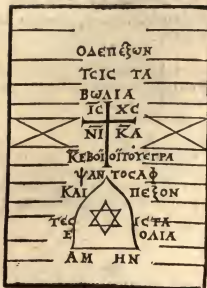 ΟΔΕΠΕΞΩΝ
ΤϹΙϹ ΤΑ
ΒΩΛΙΑ
ΙϹ ΧϹ
ΝΙ ΚΑ
ΚΕΒΟΪΟΪΤΟΥΕΓΡΑ
ΨΑΝΤΟϹΑΦ
ΚΑΙ ΠΕΞΟΝ
ΤΕϹ ΙϹΤΑ
Ε ΟΛΙΑ
ΑΜ ΗΝ